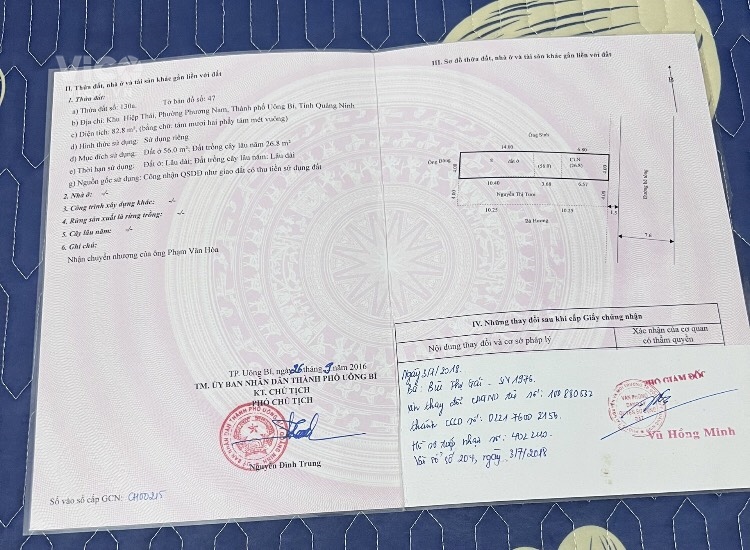 II. Thửa đất, nhà ở và tài sản khác gắn liền với đất
1. Thửa đất:
a) Thửa đất số: 130a, Tờ bản đồ số: 47
b) Địa chỉ: Khu Hiệp Thái, Phường Phương Nam, Thành phố Uông Bí, Tỉnh Quảng Ninh
c) Diện tích: 82.8 m², (bằng chữ: tám mươi hai phẩy tám mét vuông)
d) Hình thức sử dụng: Sử dụng riêng
đ) Mục đích sử dụng: Đất ở 56.0 m²; Đất trồng cây lâu năm 26.8 m²
e) Thời hạn sử dụng: Đất ở: Lâu dài; Đất trồng cây lâu năm: Lâu dài
g) Nguồn gốc sử dụng: Công nhận QSDĐ như giao đất có thu tiền sử dụng đất
2. Nhà ở: -/-
3. Công trình xây dựng khác: -/-
4. Rừng sản xuất là rừng trồng: -/-
5. Cây lâu năm: -/-
6. Ghi chú:
Nhận chuyển nhượng của ông Phạm Văn Hòa
TP. Uông Bí, ngày 26 tháng 9 năm 2016
TM. ỦY BAN NHÂN DÂN THÀNH PHỐ UÔNG BÍ
KT. CHỦ TỊCH
PHÓ CHỦ TỊCH
Nguyễn Đình Trung
Số vào sổ cấp GCN: CH00215
III. Sơ đồ thửa đất, nhà ở và tài sản khác gắn liền với đất
B
14.00 6.80
Ông Đông
4.00
đất ở
(56.0)
CLN
(26.8)
4.00
10.40 3.88 6.57
4.00
Nguyễn Thị
10.25 10.25
Bà Hương
1.5
7.6
Đường bê tông
IV. Những thay đổi sau khi cấp Giấy chứng nhận
Nội dung thay đổi và cơ sở pháp lý
Xác nhận của cơ quan
có thẩm quyền
Ngày 3/7/2018.
Bà: Bùi Thị - SN 1976.
thay đổi CMND từ số: 100880532
thành CCCD số:
Hồ sơ tiếp nhận số:
Vào sổ số 204, ngày 3/7/2018
PHÓ GIÁM ĐỐC
Vũ Hồng Minh